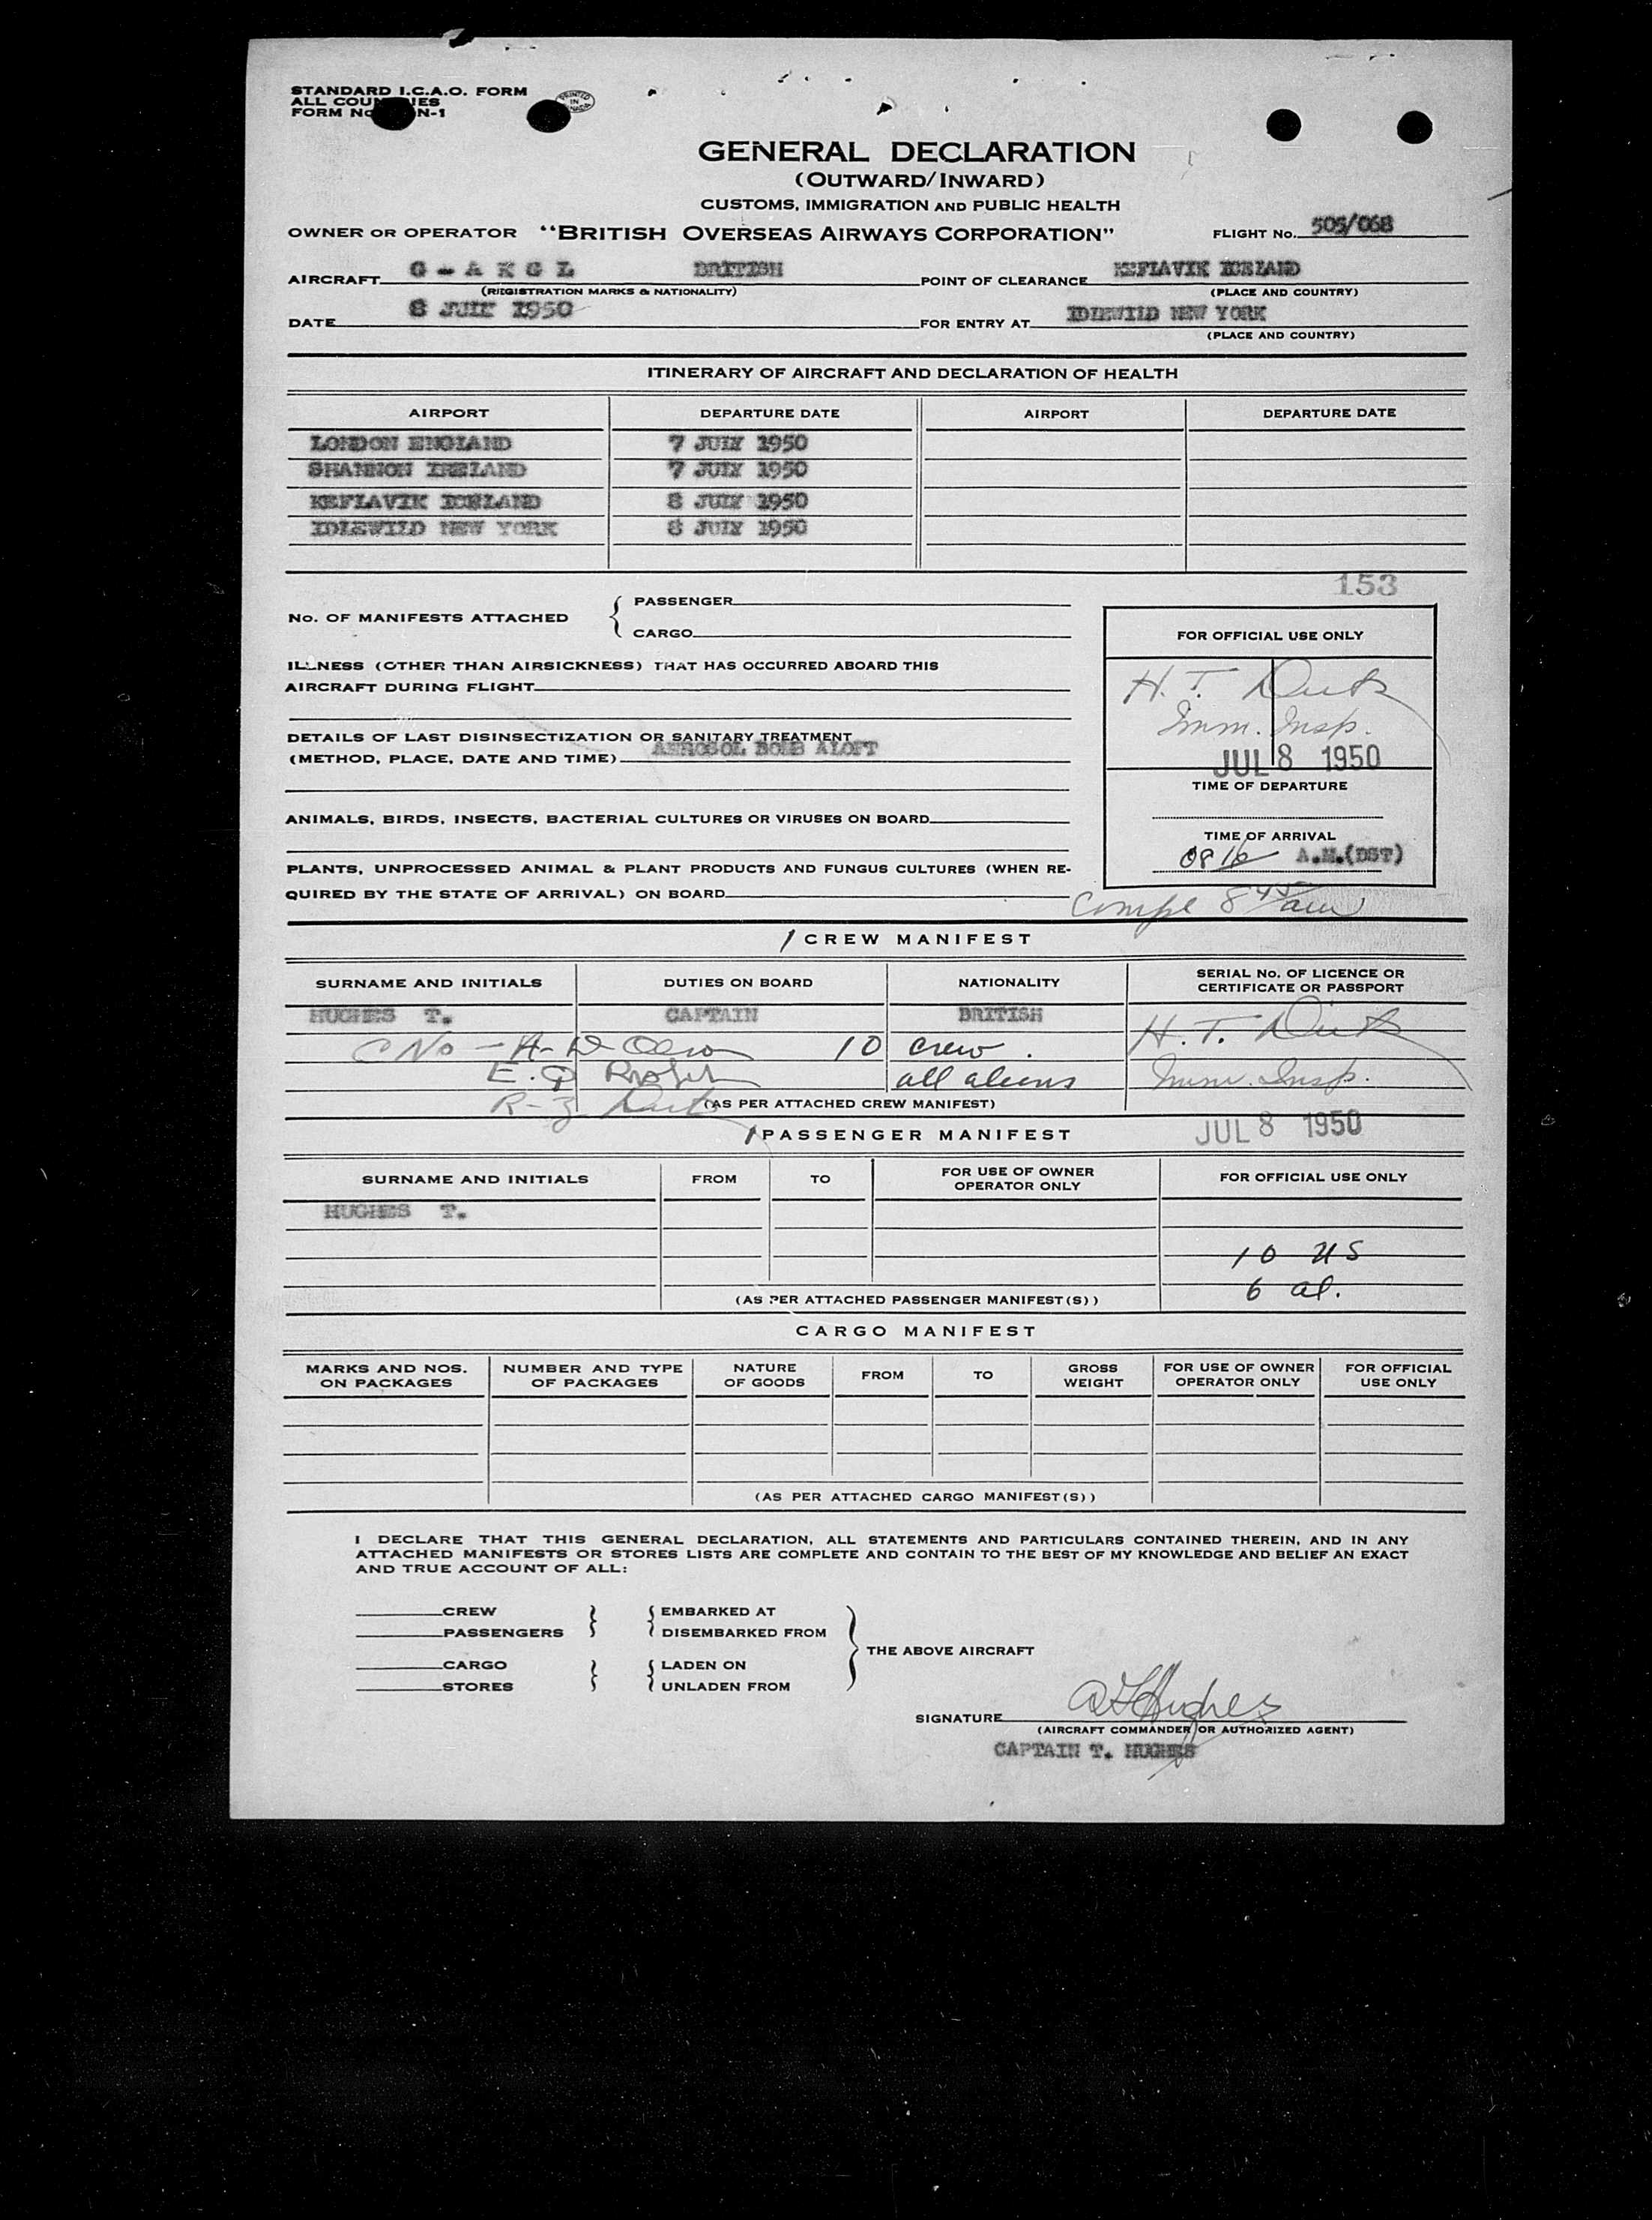 STANDARD I.C.A.O. FORM
ALL COUNTRIES
FORM No. N-1
PRINTED IN CANADA
GENERAL DECLARATION
(OUTWARD/INWARD)
CUSTOMS, IMMIGRATION AND PUBLIC HEALTH
OWNER OR OPERATOR "BRITISH OVERSEAS AIRWAYS CORPORATION" FLIGHT No. 505/068
AIRCRAFT G - A K G L BRITISH POINT OF CLEARANCE KEFLAVIK ICELAND
(REGISTRATION MARKS & NATIONALITY) (PLACE AND COUNTRY)
DATE 8 JULY 1950 FOR ENTRY AT IDLEWILD NEW YORK
(PLACE AND COUNTRY)
ITINERARY OF AIRCRAFT AND DECLARATION OF HEALTH
AIRPORT DEPARTURE DATE AIRPORT DEPARTURE DATE
LONDON ENGLAND 7 JULY 1950
SHANNON IRELAND 7 JULY 1950
KEFLAVIK ICELAND 8 JULY 1950
IDLEWILD NEW YORK 8 JULY 1950
153
No. OF MANIFESTS ATTACHED { PASSENGER
CARGO
FOR OFFICIAL USE ONLY
H. T.
Imm. Insp.
JUL 8 1950
TIME OF DEPARTURE
TIME OF ARRIVAL
0816 A.M.(DST)
Compl 8 45 am
ILLNESS (OTHER THAN AIRSICKNESS) THAT HAS OCCURRED ABOARD THIS
AIRCRAFT DURING FLIGHT
DETAILS OF LAST DISINSECTIZATION OR SANITARY TREATMENT
(METHOD, PLACE, DATE AND TIME) AEROSOL BOMB ALOFT
ANIMALS, BIRDS, INSECTS, BACTERIAL CULTURES OR VIRUSES ON BOARD
PLANTS, UNPROCESSED ANIMAL & PLANT PRODUCTS AND FUNGUS CULTURES (WHEN RE-
QUIRED BY THE STATE OF ARRIVAL) ON BOARD
/ CREW MANIFEST
SURNAME AND INITIALS DUTIES ON BOARD NATIONALITY SERIAL No. OF LICENCE OR
CERTIFICATE OR PASSPORT
HUGHES T. CAPTAIN BRITISH
10 crew. H. T.
all aliens Imm. Insp.
(AS PER ATTACHED CREW MANIFEST)
JUL 8 1950
/ PASSENGER MANIFEST
SURNAME AND INITIALS FROM TO FOR USE OF OWNER
OPERATOR ONLY FOR OFFICIAL USE ONLY
HUGHES T.
10 US
6 al.
(AS PER ATTACHED PASSENGER MANIFEST(S))
CARGO MANIFEST
MARKS AND NOS.
ON PACKAGES NUMBER AND TYPE
OF PACKAGES NATURE
OF GOODS FROM TO GROSS
WEIGHT FOR USE OF OWNER
OPERATOR ONLY FOR OFFICIAL
USE ONLY
(AS PER ATTACHED CARGO MANIFEST(S))
I DECLARE THAT THIS GENERAL DECLARATION, ALL STATEMENTS AND PARTICULARS CONTAINED THEREIN, AND IN ANY
ATTACHED MANIFESTS OR STORES LISTS ARE COMPLETE AND CONTAIN TO THE BEST OF MY KNOWLEDGE AND BELIEF AN EXACT
AND TRUE ACCOUNT OF ALL:
CREW EMBARKED AT
PASSENGERS DISEMBARKED FROM
THE ABOVE AIRCRAFT
CARGO LADEN ON
STORES UNLADEN FROM
SIGNATURE
(AIRCRAFT COMMANDER OR AUTHORIZED AGENT)
CAPTAIN T. HUGHES